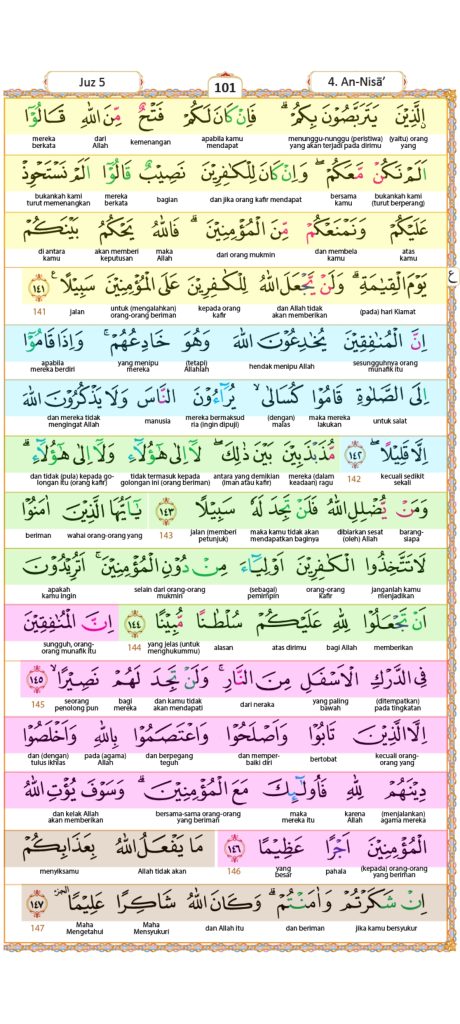 Juz 5
101
4. An-Nisā’
الَّذِيْنَ يَتَرَبَّصُوْنَ بِكُمْۗ فَاِنْ كَانَ لَكُمْ فَتْحٌ مِّنَ اللّٰهِ قَالُوْٓا
(yaitu) orang yang menunggu-nunggu (peristiwa) yang akan terjadi pada dirimu apabila kamu mendapat kemenangan dari Allah mereka berkata
اَلَمْ نَكُنْ مَّعَكُمْۖ وَاِنْ كَانَ لِلْكٰفِرِيْنَ نَصِيْبٌۙ قَالُوْٓا اَلَمْ نَسْتَحْوِذْ
bukankah kami (turut berperang) bersama kamu dan jika orang kafir mendapat bagian mereka berkata bukankah kami turut memenangkan
عَلَيْكُمْ وَنَمْنَعْكُمْ مِّنَ الْمُؤْمِنِيْنَۗ فَاللّٰهُ يَحْكُمُ بَيْنَكُمْ
atas kamu dan membela kamu dari orang mukmin maka Allah akan memberi keputusan di antara kamu
يَوْمَ الْقِيٰمَةِۗ وَلَنْ يَّجْعَلَ اللّٰهُ لِلْكٰفِرِيْنَ عَلَى الْمُؤْمِنِيْنَ سَبِيْلًا ࣖ ١٤١
ع
(pada) hari Kiamat dan Allah tidak akan memberikan kepada orang kafir untuk (mengalahkan) orang-orang beriman jalan 141
اِنَّ الْمُنٰفِقِيْنَ يُخٰدِعُوْنَ اللّٰهَ وَهُوَ خَادِعُهُمْۚ وَاِذَا قَامُوْٓا
sesungguhnya orang munafik itu hendak menipu Allah (tetapi) Allahlah yang menipu mereka apabila mereka berdiri
اِلَى الصَّلٰوةِ قَامُوْا كُسَالٰىۙ يُرَاۤءُوْنَ النَّاسَ وَلَا يَذْكُرُوْنَ اللّٰهَ
untuk salat maka mereka lakukan (dengan) malas mereka bermaksud ria (ingin dipuji) manusia dan mereka tidak mengingat Allah
اِلَّا قَلِيْلًاۖ ١٤٢ مُّذَبْذَبِيْنَ بَيْنَ ذٰلِكَۖ لَآ اِلٰى هٰٓؤُلَاۤءِ وَلَآ اِلٰى هٰٓؤُلَاۤءِۗ
kecuali sedikit sekali 142 mereka (dalam keadaan) ragu antara yang demikian (iman atau kafir) tidak termasuk kepada golongan ini (orang beriman) dan tidak (pula) kepada golongan itu (orang kafir)
وَمَنْ يُّضْلِلِ اللّٰهُ فَلَنْ تَجِدَ لَهٗ سَبِيْلًا ١٤٣ يٰٓاَيُّهَا الَّذِيْنَ اٰمَنُوْا
barangsiapa dibiarkan sesat (oleh) Allah maka kamu tidak akan mendapatkan baginya jalan (memberi petunjuk) 143 wahai orang-orang yang beriman
لَا تَتَّخِذُوا الْكٰفِرِيْنَ اَوْلِيَاۤءَ مِنْ دُوْنِ الْمُؤْمِنِيْنَۚ اَتُرِيْدُوْنَ
janganlah kamu menjadikan orang-orang kafir (sebagai) pemimpin selain dari orang-orang mukmin apakah kamu ingin
اَنْ تَجْعَلُوْا لِلّٰهِ عَلَيْكُمْ سُلْطٰنًا مُّبِيْنًا ١٤٤ اِنَّ الْمُنٰفِقِيْنَ
memberikan bagi Allah atas dirimu alasan yang jelas (untuk menghukummu) 144 sungguh, orang-orang munafik itu
فِى الدَّرْكِ الْاَسْفَلِ مِنَ النَّارِۚ وَلَنْ تَجِدَ لَهُمْ نَصِيْرًاۙ ١٤٥
(ditempatkan) pada tingkatan yang paling bawah dari neraka dan kamu tidak akan mendapati bagi mereka seorang penolong pun 145
اِلَّا الَّذِيْنَ تَابُوْا وَاَصْلَحُوْا وَاعْتَصَمُوْا بِاللّٰهِ وَاَخْلَصُوْا
kecuali orang-orang yang bertobat dan memperbaiki diri dan berpegang teguh pada (agama) Allah dan (dengan) tulus ikhlas
دِيْنَهُمْ لِلّٰهِ فَاُولٰۤىِٕكَ مَعَ الْمُؤْمِنِيْنَۗ وَسَوْفَ يُؤْتِ اللّٰهُ
(menjalankan) agama mereka karena Allah maka mereka itu bersama-sama orang-orang yang beriman dan kelak Allah akan memberikan
الْمُؤْمِنِيْنَ اَجْرًا عَظِيْمًا ١٤٦ مَا يَفْعَلُ اللّٰهُ بِعَذَابِكُمْ
(kepada) orang-orang yang beriman pahala yang besar 146 Allah tidak akan menyiksamu
اِنْ شَكَرْتُمْ وَاٰمَنْتُمْۗ وَكَانَ اللّٰهُ شَاكِرًا عَلِيْمًا ۔ ١٤٧
jika kamu bersyukur dan beriman dan Allah itu Maha Mensyukuri Maha Mengetahui 147